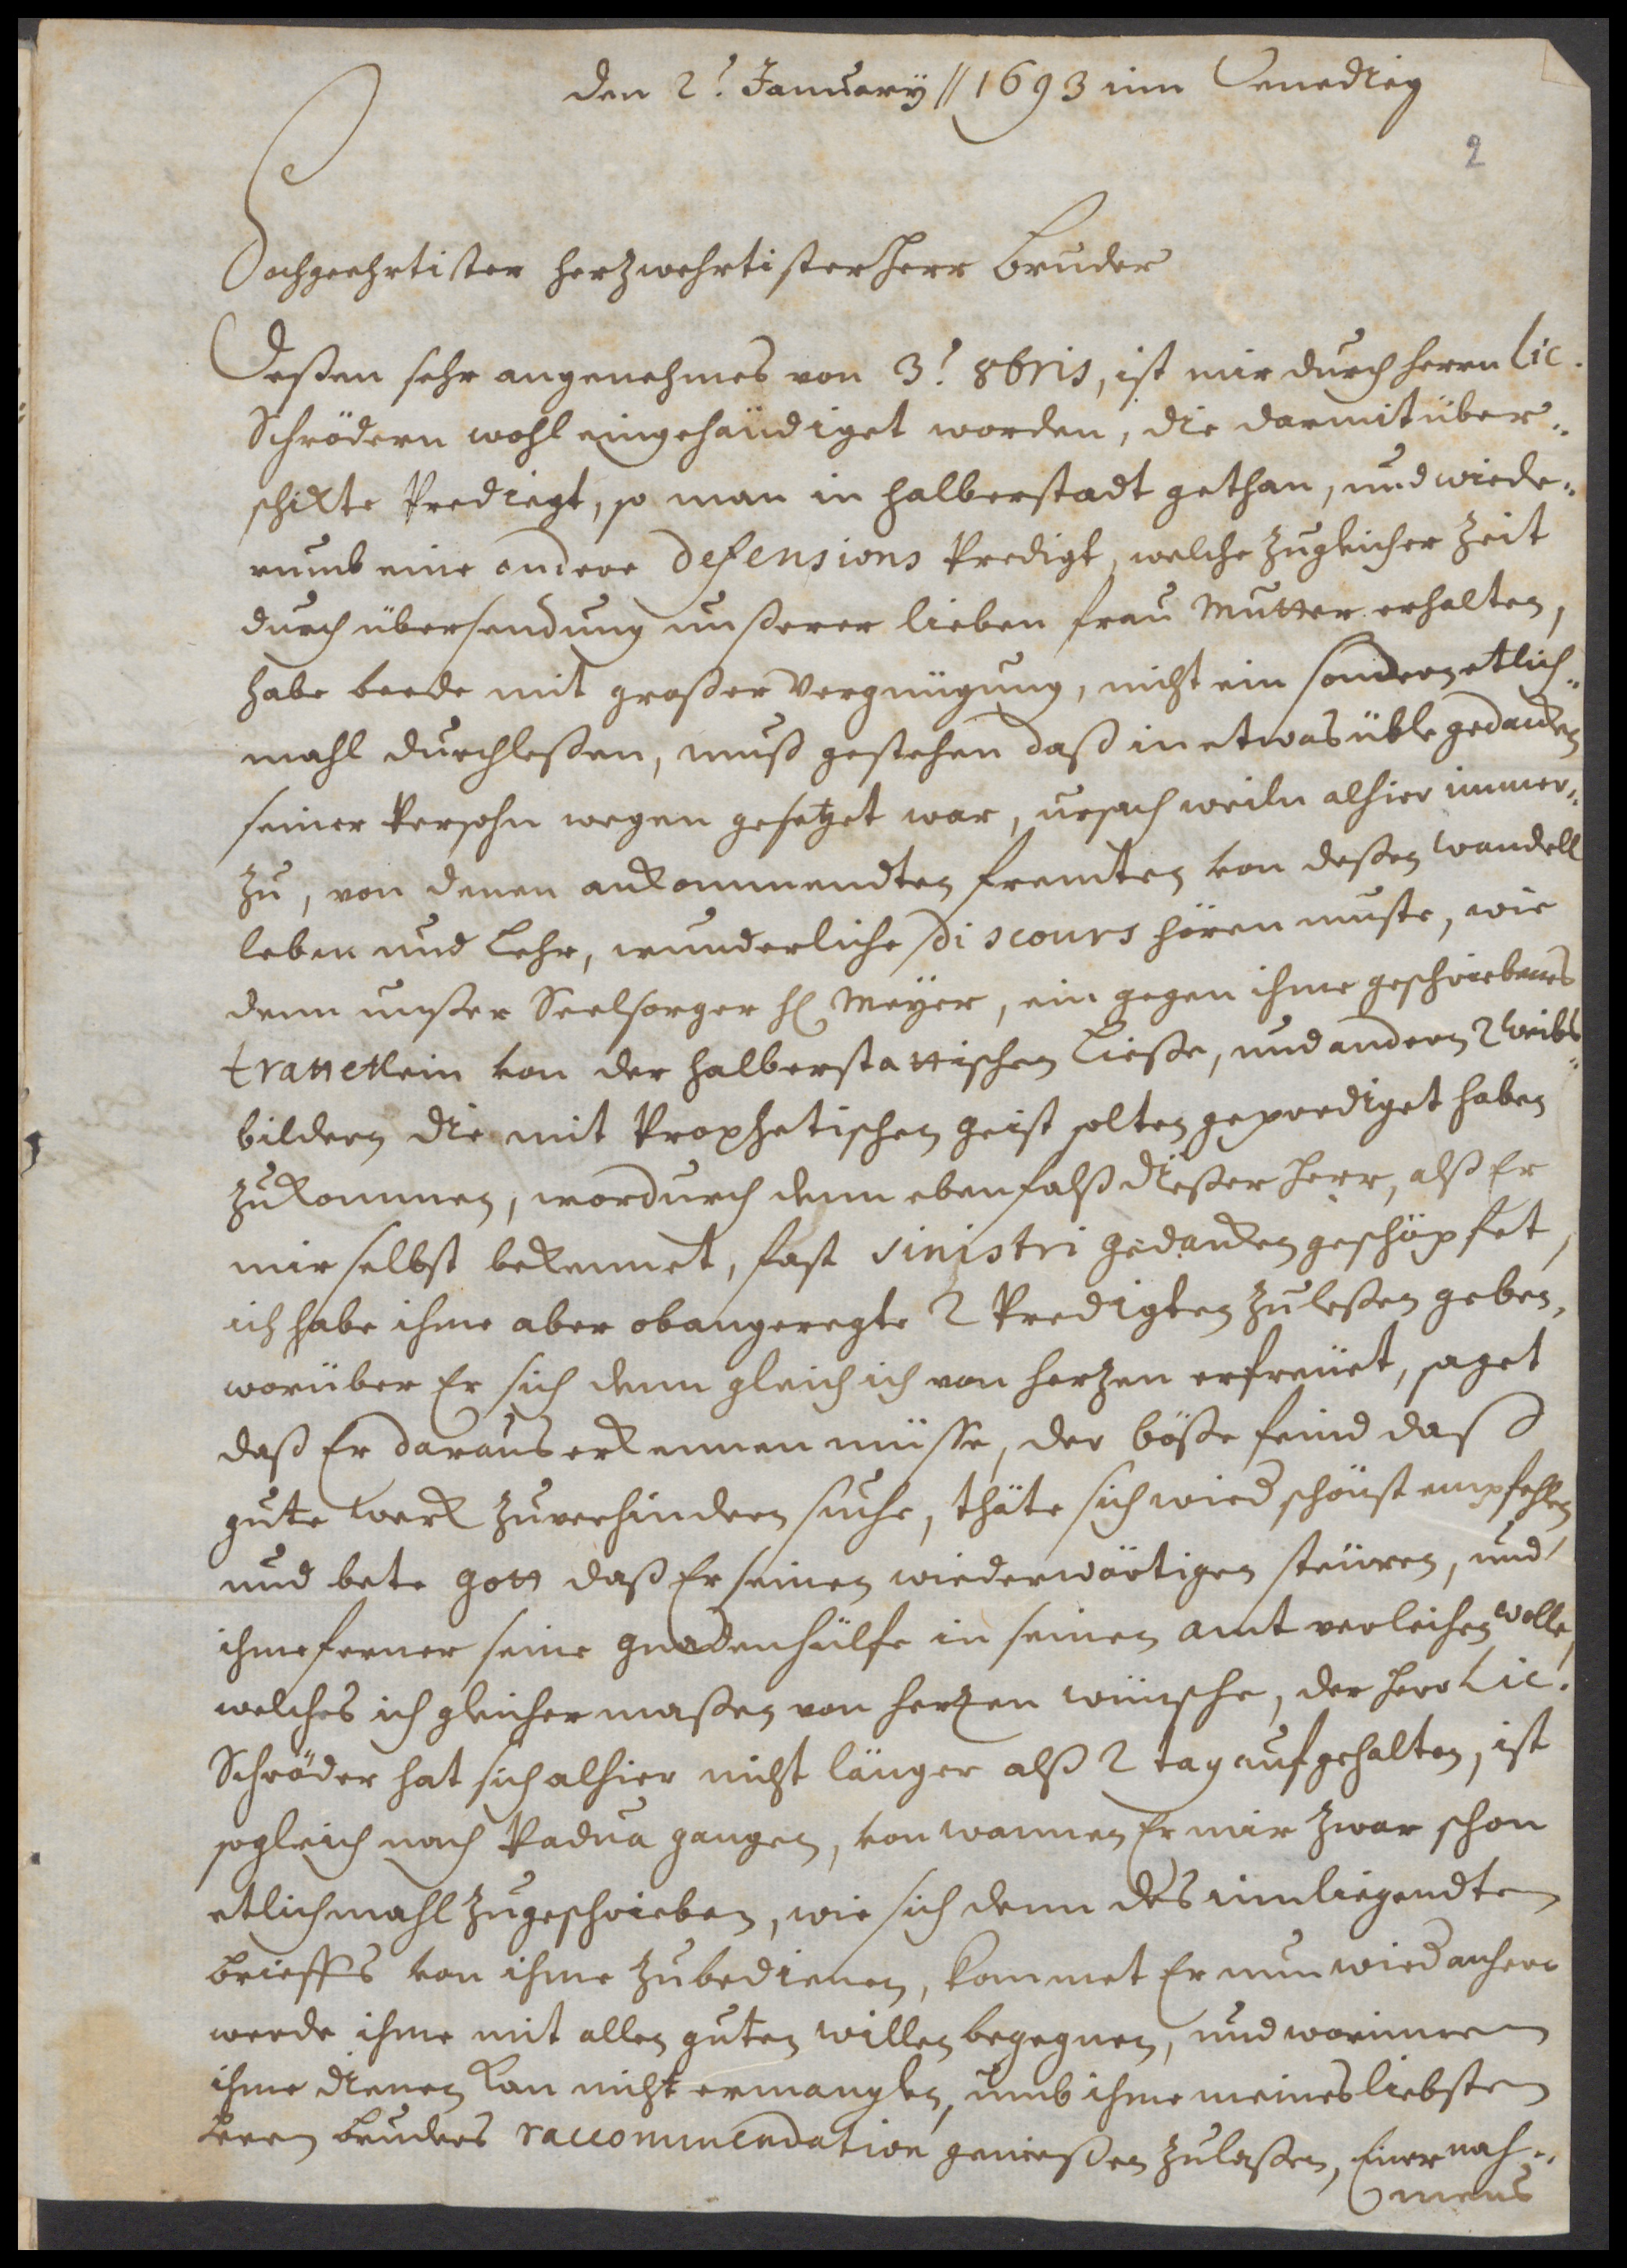 den 2. January // 1693 inn Venedieg
2
Hochgeehrtister hertzwehrtister Herr Bruder
Deßen sehr angenehmes von 3. 8bris, ist mir durch Herrn Lic.
Schrödern wohl eingehändiget worden, die darmit über„
schikte Prediegt, so man in Halberstadt gethan, und wiede„
rumb eine andere defensions Predigt, welche zugleicher Zeit
durch übersendung unßerer lieben Frau Mutter erhalten,
habe beede mit großer Vergnügung, nicht ein sondern etlich„
mahl durchleßen, muß gestehen daß in etwas üble gedanken
seiner Persohn wegen gesetzet war, ursach weiln alhier immer„
zu, von denen ankommendten fremten von deßen wandell
leben und Lehr, wunderliche discours hören muste, wie
denn unßer Seelsorger H. Meyer, ein gegen ihme geschriebenes
trattetlein von der Halberstattischen Ließe, und andern 2 weibs„
bildern die mit Prophetischen geist solten geprediget haben
zukommen, wordurch denn ebenfalß dießer Herr, alß Er
mir selbst bekennet, fast sinistri gedanken geschöpfet,
ich habe ihme aber obangeregte 2 Predigten zuleßen geben,
worüber Er sich denn gleich ich von hertzen erfreuet, saget
daß Er daraus erkennen müsse, der böße feind daß
gute werk zuverhindern suche, thäte sich wied schönst empfehlen
und bete gott daß Er seinen wiederwärtigen steüren, und
ihme ferner seine gnadenhülfe in seinen amt verleihen wolle,
welches ich gleicher maßen von hertzen wünsche, der Herr Lic.
Schröder hat sich alhier nicht länger alß 2 tag aufgehalten, ist
sogleich nach Padua gangen, von wannen Er mir zwar schon
etlichmahl zugeschrieben, wie sich denn des innliegendten
brieffs von ihme zubedienen, kommet Er nun wied anhero
werde ihme mit allen guten willen begegnen, und worinnen
ihme dienen kan nicht ermanglen, umb ihme meines liebsten
Herrn Bruders raccommendation genießen zulaßen, Einer nah„
mens